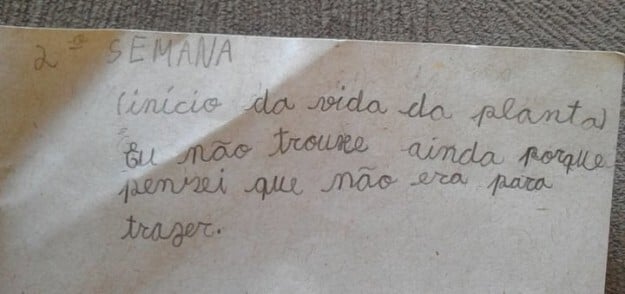 2ª SEMANA
(início da vida da planta)
Eu não trouxe ainda porque
pensei que não era para
trazer.